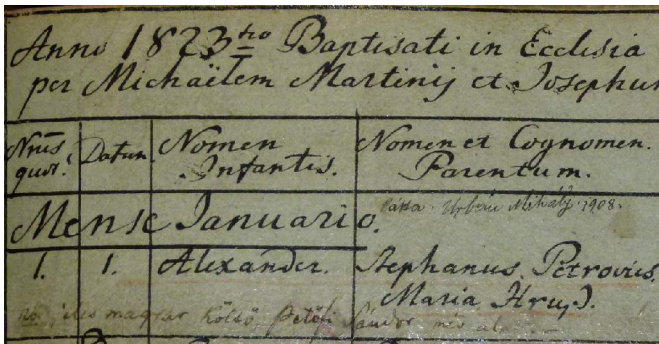 Anno 1823tio Baptisati in Ecclesia
per Michaëlem Martinij et Josephum
Nrus Datum Nomen Nomen et Cognomen.
quot. Infantis. Parentum.
Mense Januario.
Látta. Urbán Mihály. 1908.
1. 1. Alexander. Stephanus Petrovics.
Maria Hruz).
jeles magyar költő, Petőfi Sándor